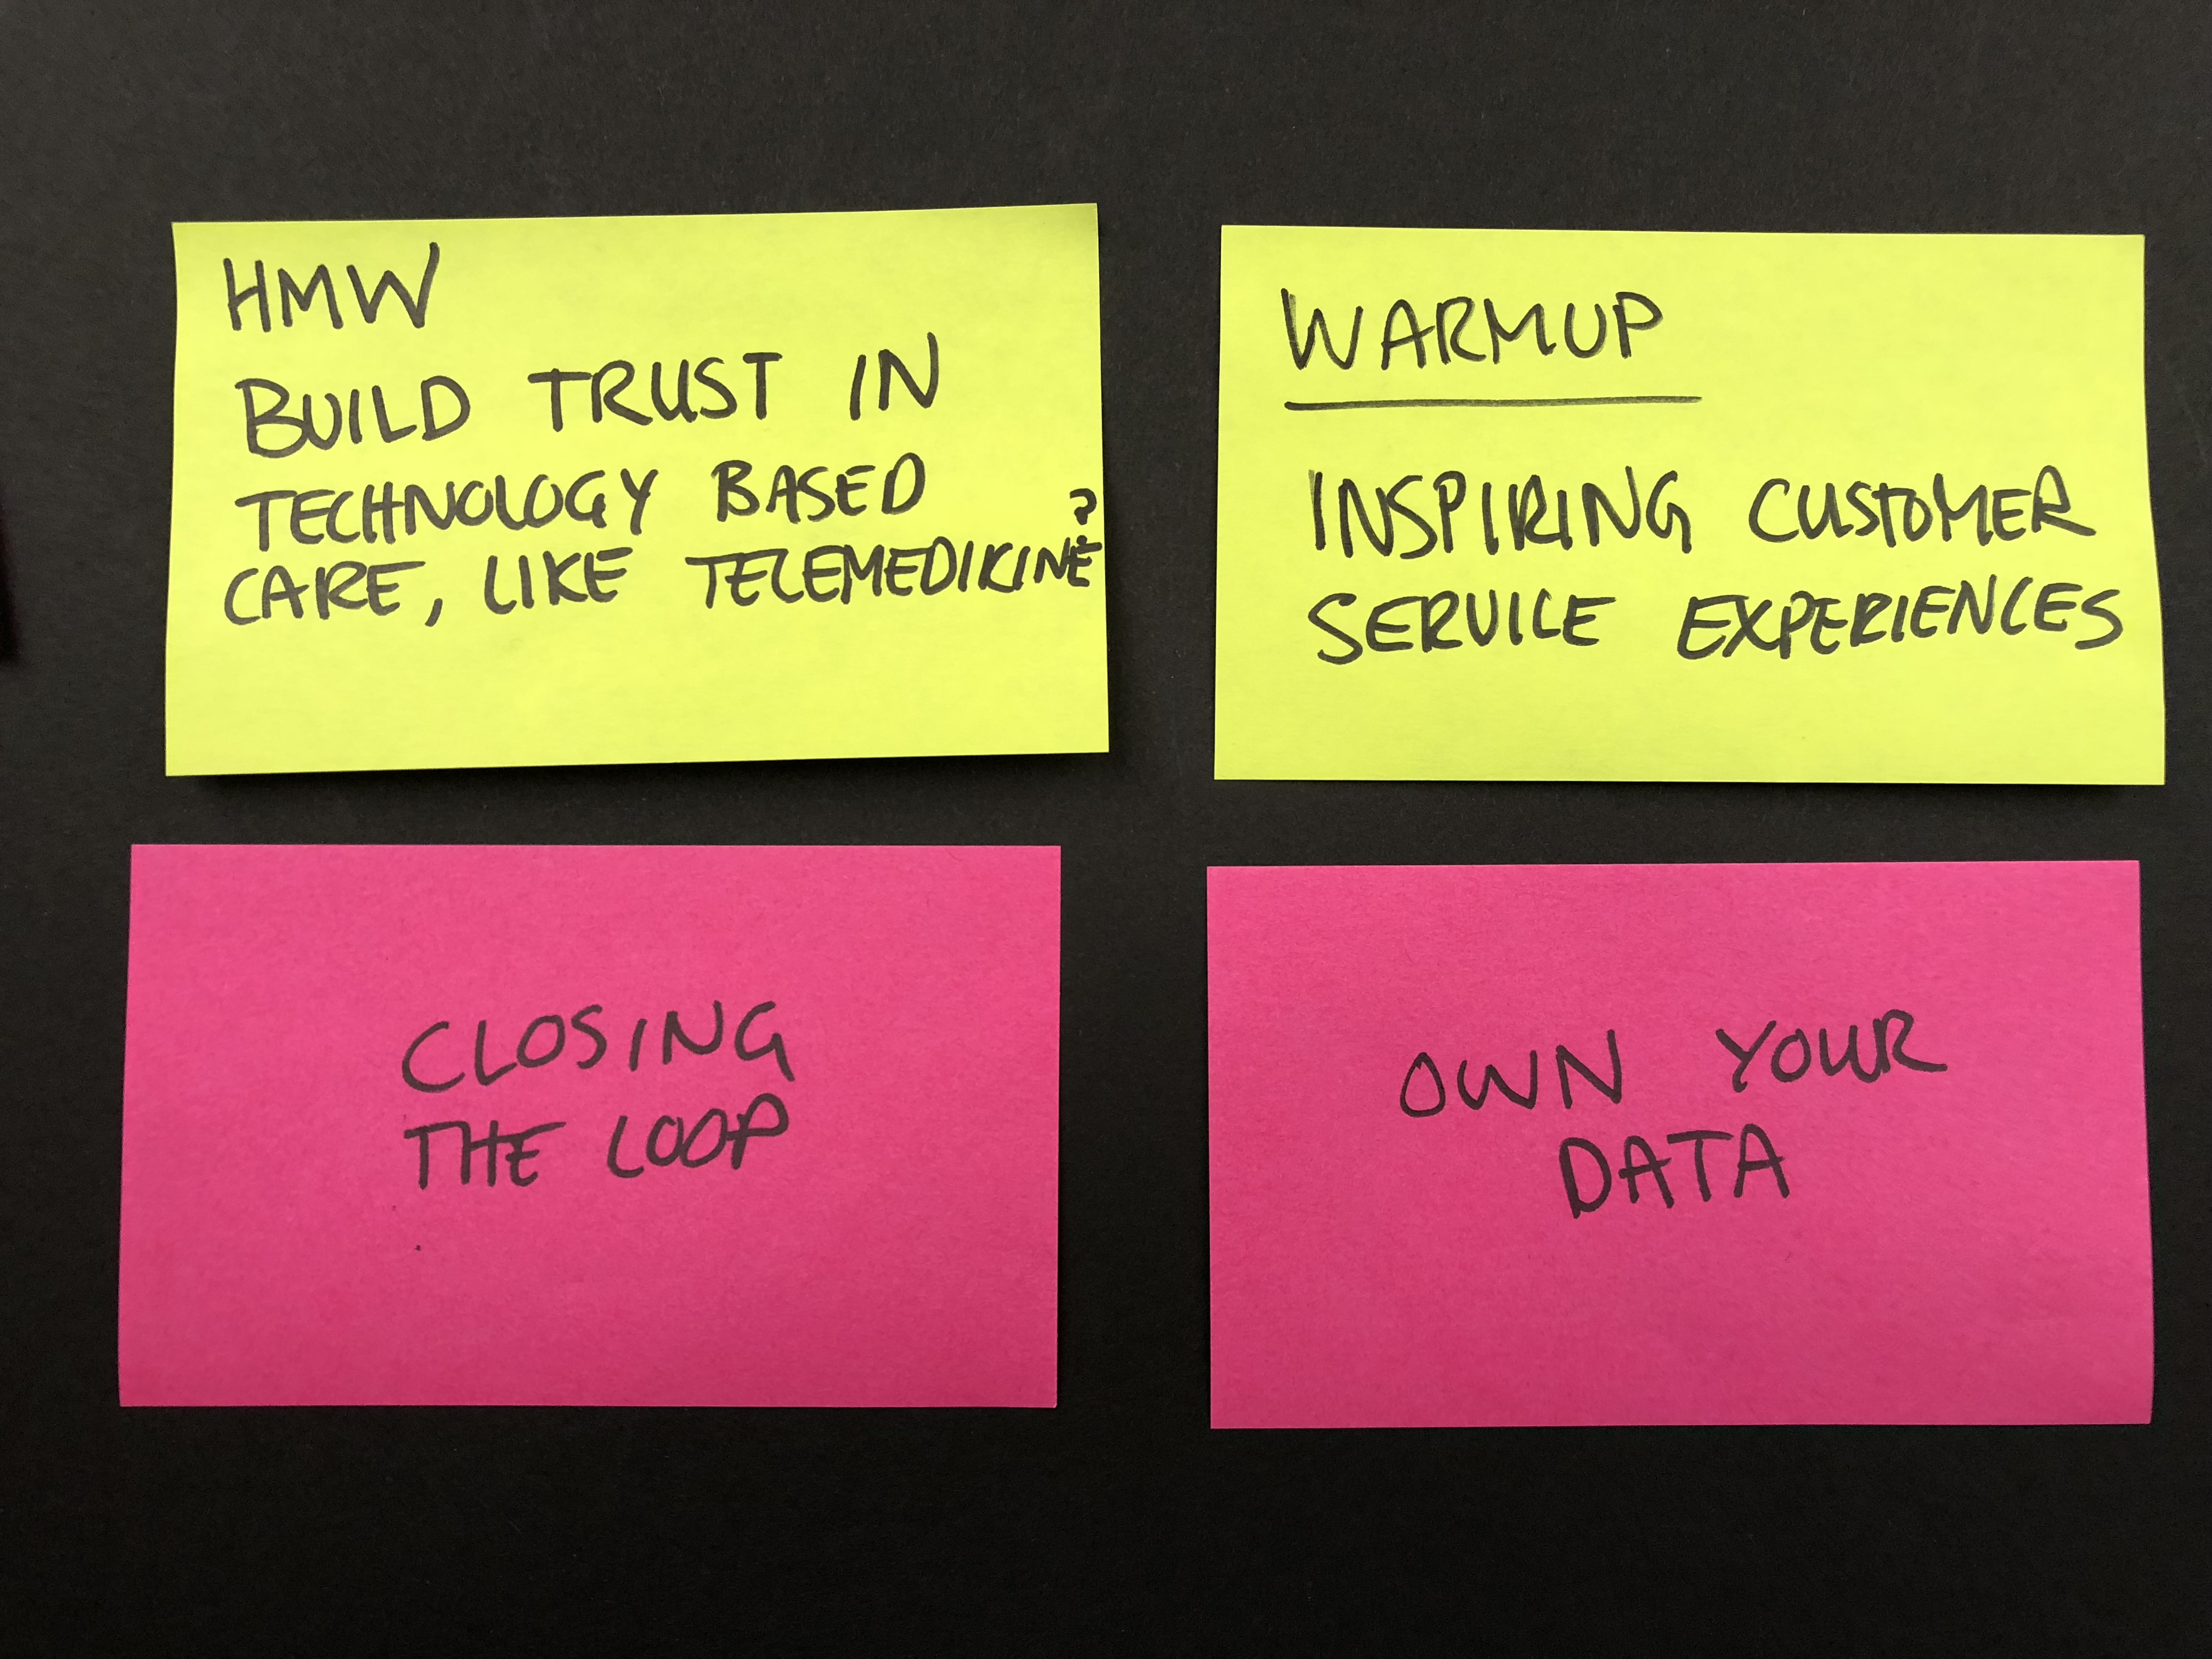 HMW
BUILD TRUST IN
TECHNOLOGY BASED
CARE, LIKE TELEMEDIKINE?
WARMUP
INSPIRING CUSTOMER
SERVICE EXPERIENCES
CLOSING
THE LOOP
OWN YOUR
DATA